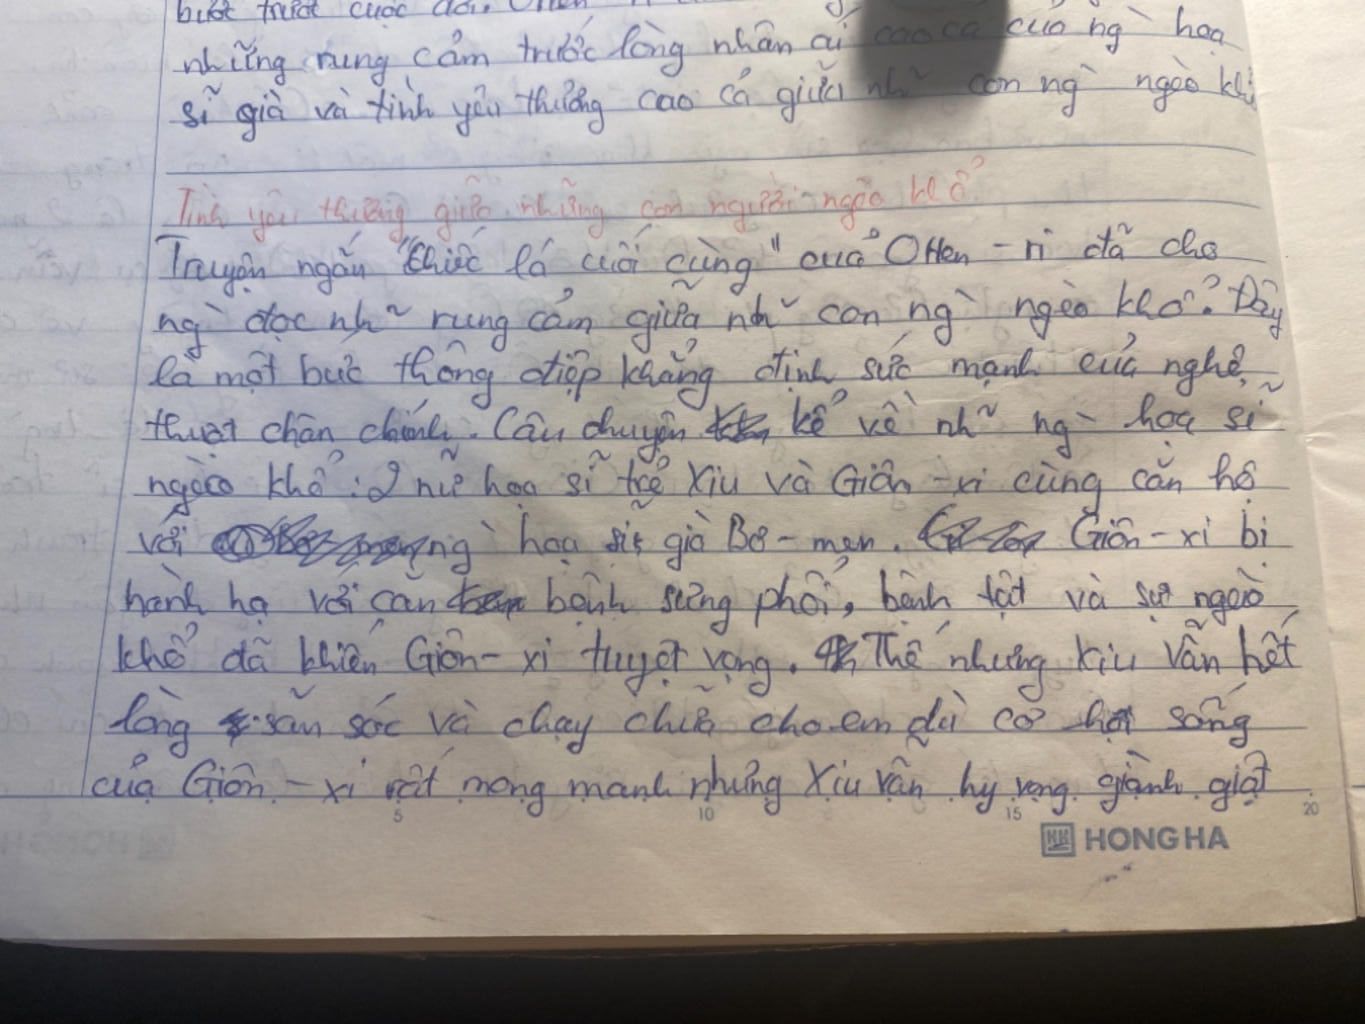 những rung cảm trước lòng nhân ái cao cả của ng` hoạ
sĩ già và tình yêu thương cao cả giữa nh~ con ng` ngèo khổ
Tình yêu thương giữa những con người ngèo khổ
Truyện ngắn "chiếc lá cuối cùng" của OHen-ri đã cho
ng` đọc nh~ rung cảm giữa nh~ con ng` ngèo khổ. Đây
là một bức thông điệp khẳng định sức mạnh của nghệ
thuật chân chính. Câu chuyện kể về nh~ ng` hoạ sĩ
ngèo khổ: 2 nữ hoạ sĩ trẻ Xiu và Giôn-xi cùng căn hộ
với ng` hoạ sĩ già Bơ-men. Giôn-xi bị
hành hạ với căn bệnh sưng phổi, bệnh tật và sự ngèo
khổ đã khiến Giôn-xi tuyệt vọng. Thế nhưng Xiu vẫn hết
lòng săn sóc và chạy chữa cho em dù cơ hội sống
của Giôn-xi rất mong manh nhưng Xiu vẫn hy vọng giành giật
5 10 15 20
HONG HA